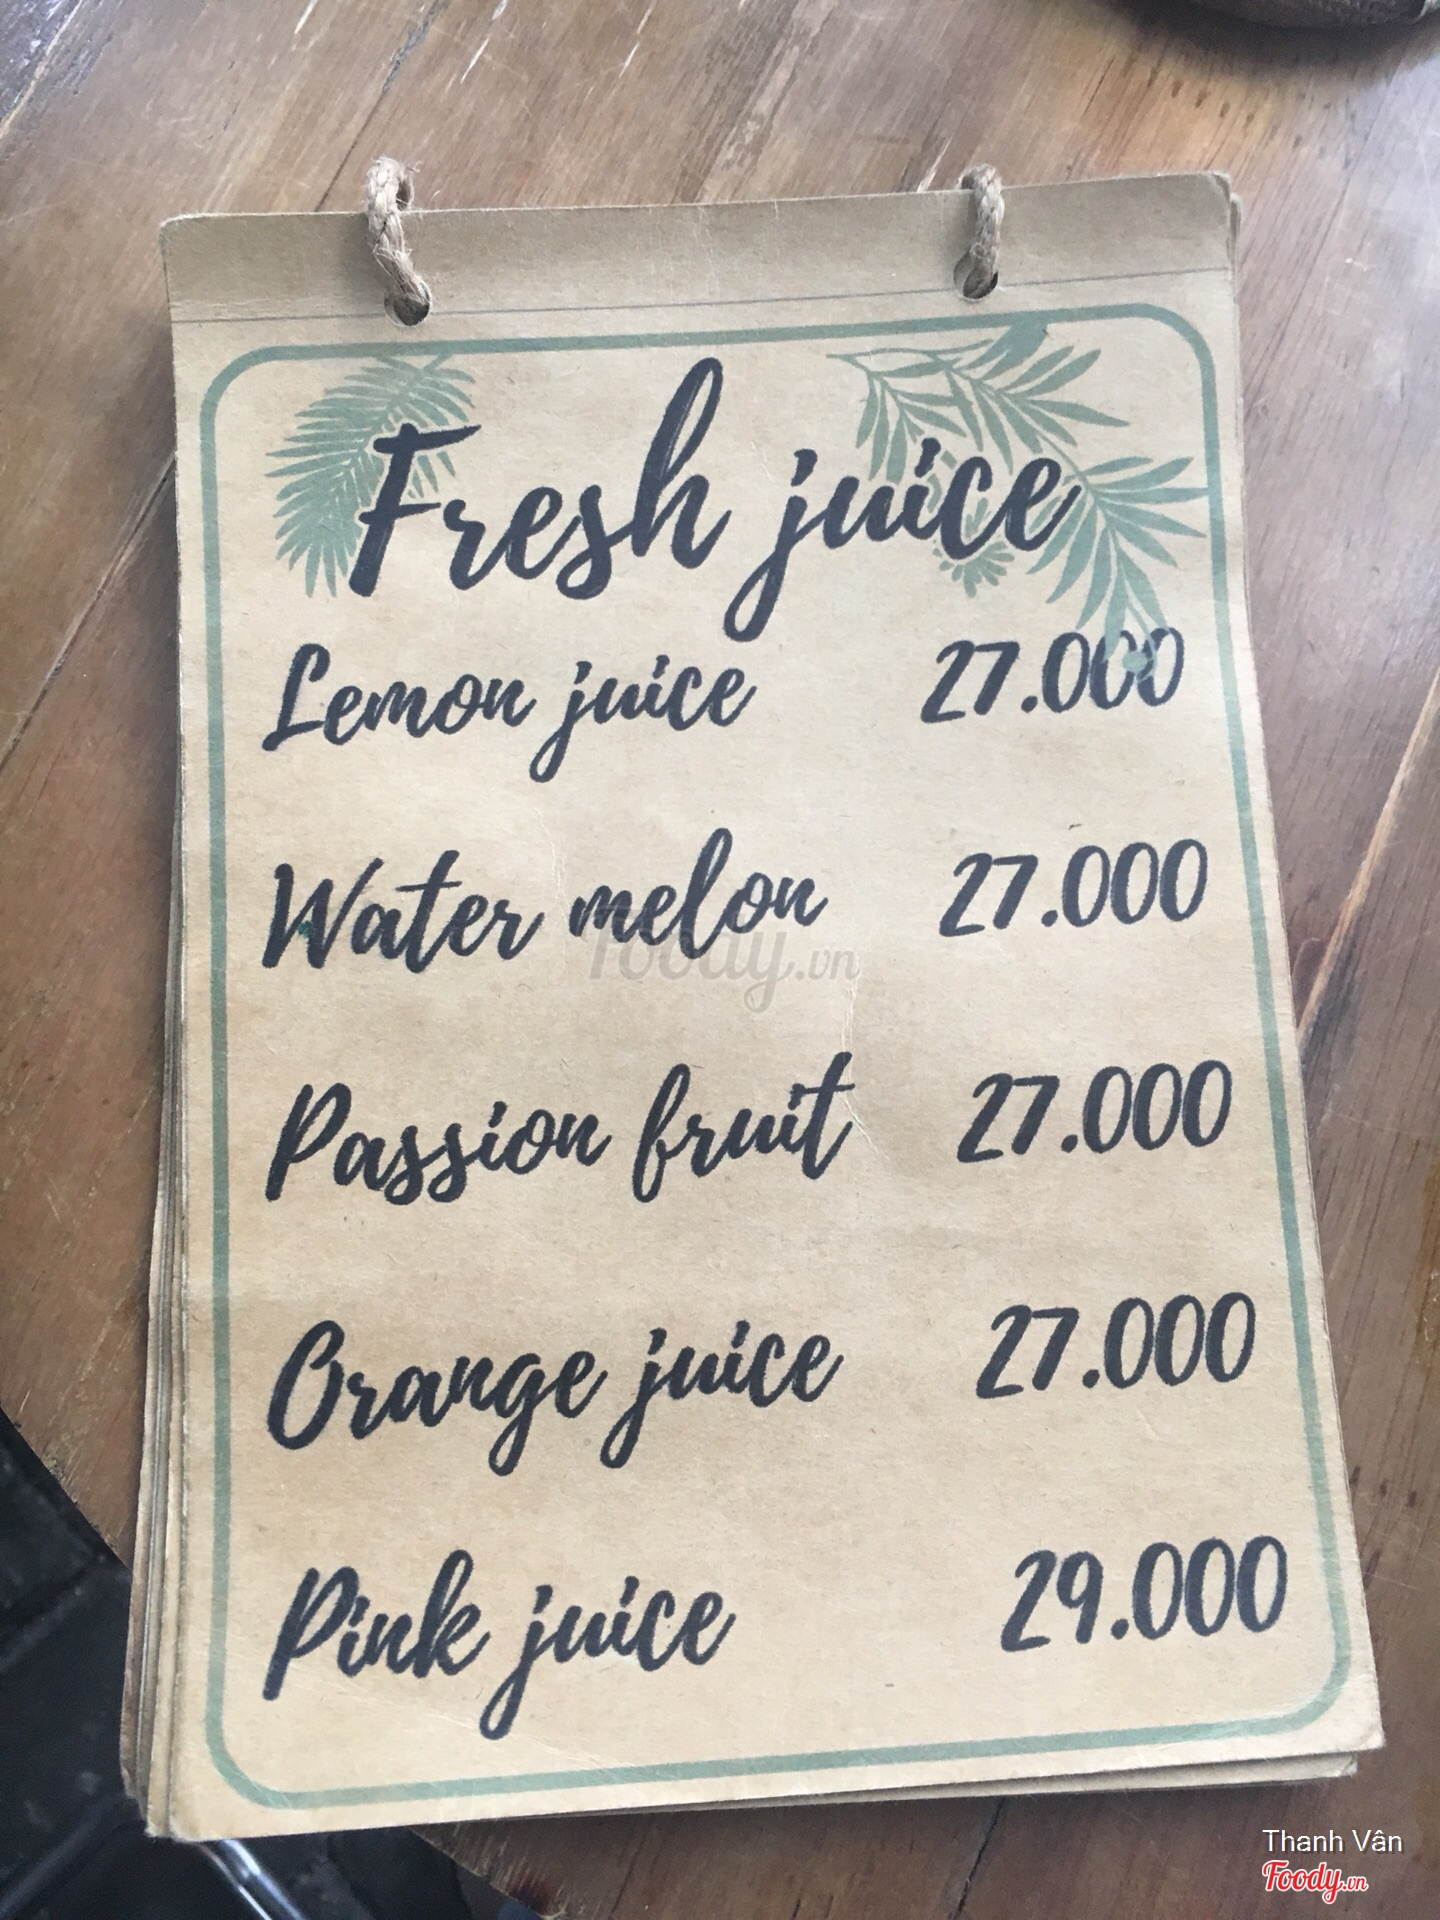 Fresh juice
Lemon juice 27.000
Water melon 27.000
Foody.vn
Passion fruit 27.000
Orange juice 27.000
Pink juice 29.000
Thanh Vân
Foody.vn